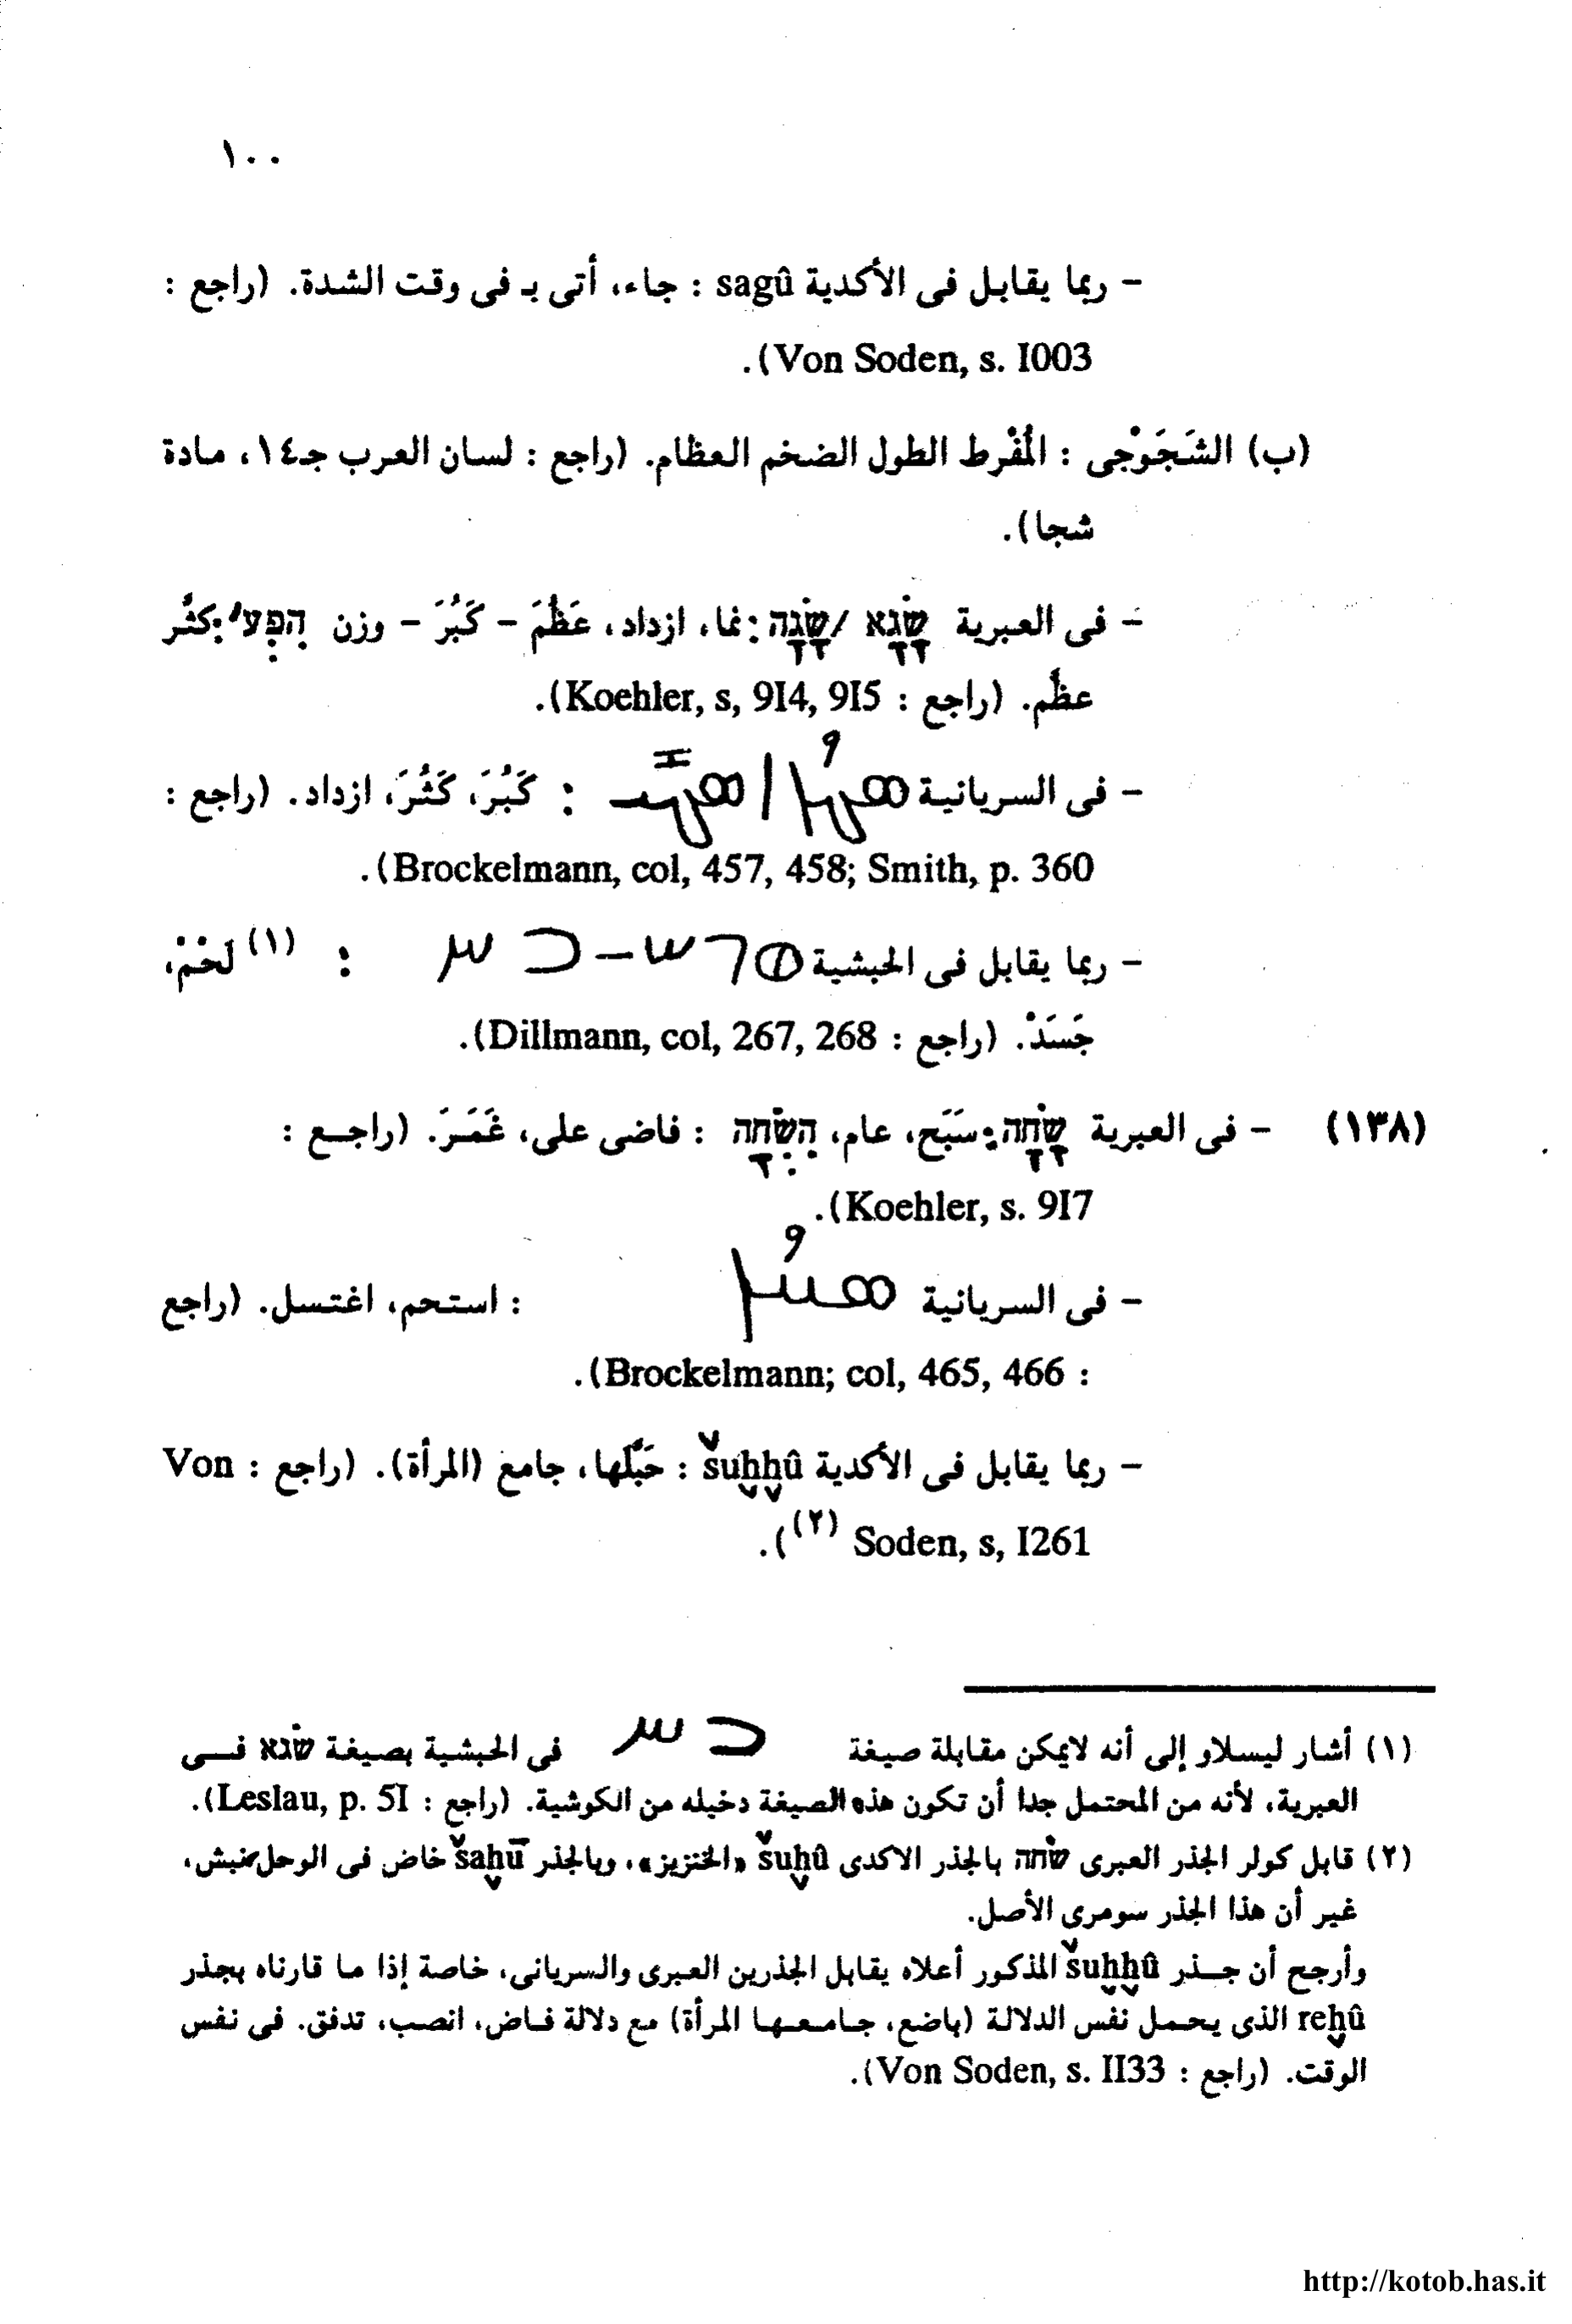 ١٠٠
– ربما يقابل فى الأكدية sagû : جاء، أتى بـ فى وقت الشدة. (راجع :
Von Soden, s. I003).
(ب) الشَجَوْجى : المُفْرط الطول الضخم العظام. (راجع : لسان العرب جـ١٤، مادة
شجا).
– فى العبرية שָׂגָא / שָׂגָה : نما، ازداد، عَظُمَ – كَبُرَ – وزن הִפְעִ׳ : كثُر
عظُم. (راجع : Koehler, s, 9I4, 9I5).
– فى السريانية ܣܓܐ / ܣܓܝ : كَبُرَ، كَثُرَ، ازداد. (راجع :
Brockelmann, col, 457, 458; Smith, p. 360).
– ربما يقابل فى الحبشية : (١) لَحْمْ،
جَسَدْ. (راجع : Dillmann, col, 267, 268).
(١٣٨) – فى العبرية שָׂחָה : سَبَح، عام، הִשְׂחָה : فاضى على، غَمَرَ. (راجـع :
Koehler, s. 9I7).
– فى السريانية ܣܚܐ : استحم، اغتسل. (راجع
: Brockelmann; col, 465, 466).
– ربما يقابل فى الأكدية šuḫḫû : حَبَّلها، جامع (المرأة). (راجع : Von
Soden, s, I261 (٢)).
(١) أشار ليسلاو إلى أنه لايمكن مقابلة صيغة فى الحبشية بصيغة שׂגא فـى
العبرية، لأنه من المحتمل جدا أن تكون هذه الصيغة دخيله من الكوشية. (راجع : Leslau, p. 5I).
(٢) قابل كولر الجذر العبرى שׂחה بالجذر الاكدى šuḫû «الخنزيز»، وبالجذر šaḫū خاض فى الوحل نبش،
غير أن هذا الجذر سومرى الأصل.
وأرجح أن جـذر šuḫḫû المذكور أعلاه يقابل الجذرين العبرى والسريانى، خاصة إذا ما قارناه بجذر
reḫû الذى يحمل نفس الدلالة (باضع، جامعها المرأة) مع دلالة فاض، انصب، تدفق. فى نفس
الوقت. (راجع : Von Soden, s. II33).
http://kotob.has.it